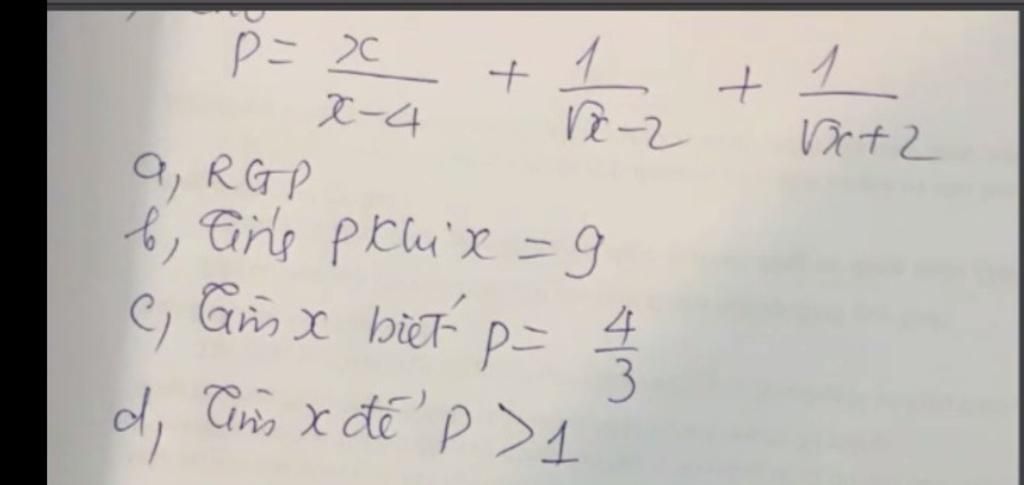 P = x/(x-4) + 1/(√x-2) + 1/(√x+2)
a, RGP
b, Tính P khi x = 9
c, Tìm x biết P = 4/3
d, Tìm x để P > 1